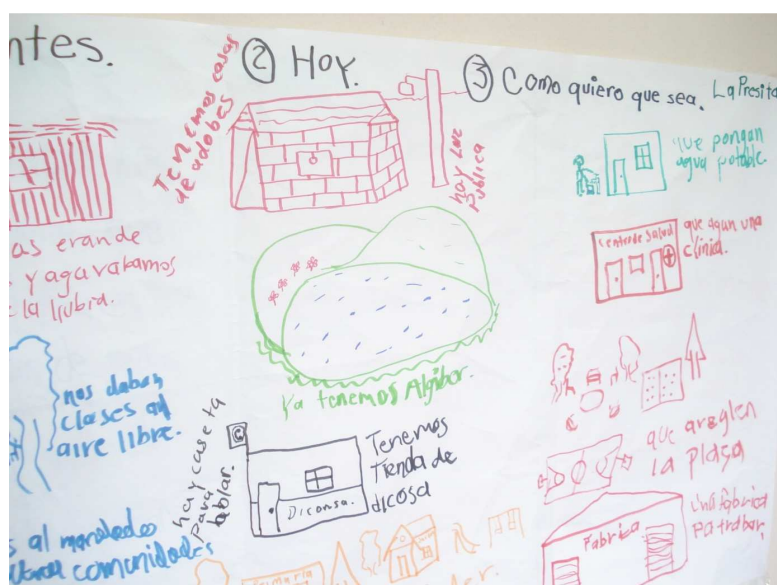 ntes.
as eran de
y agarabamos
la llubia.
nos daban
clases al
aire libre.
s al mandado
comunidades
② Hoy.
Tenemos casas
de adobes
hay luz
Publica
Ya tenemos Algibor.
hay caseta
Para
ablar.
Tenemos
Tienda de
dicosa
Diconsa.
③ Como quiero que sea.
La Presita
que pongan
agua potable
Centro de Salud
que agan una
clinica.
que areglen
la plaza
Fabrica
una fabrica